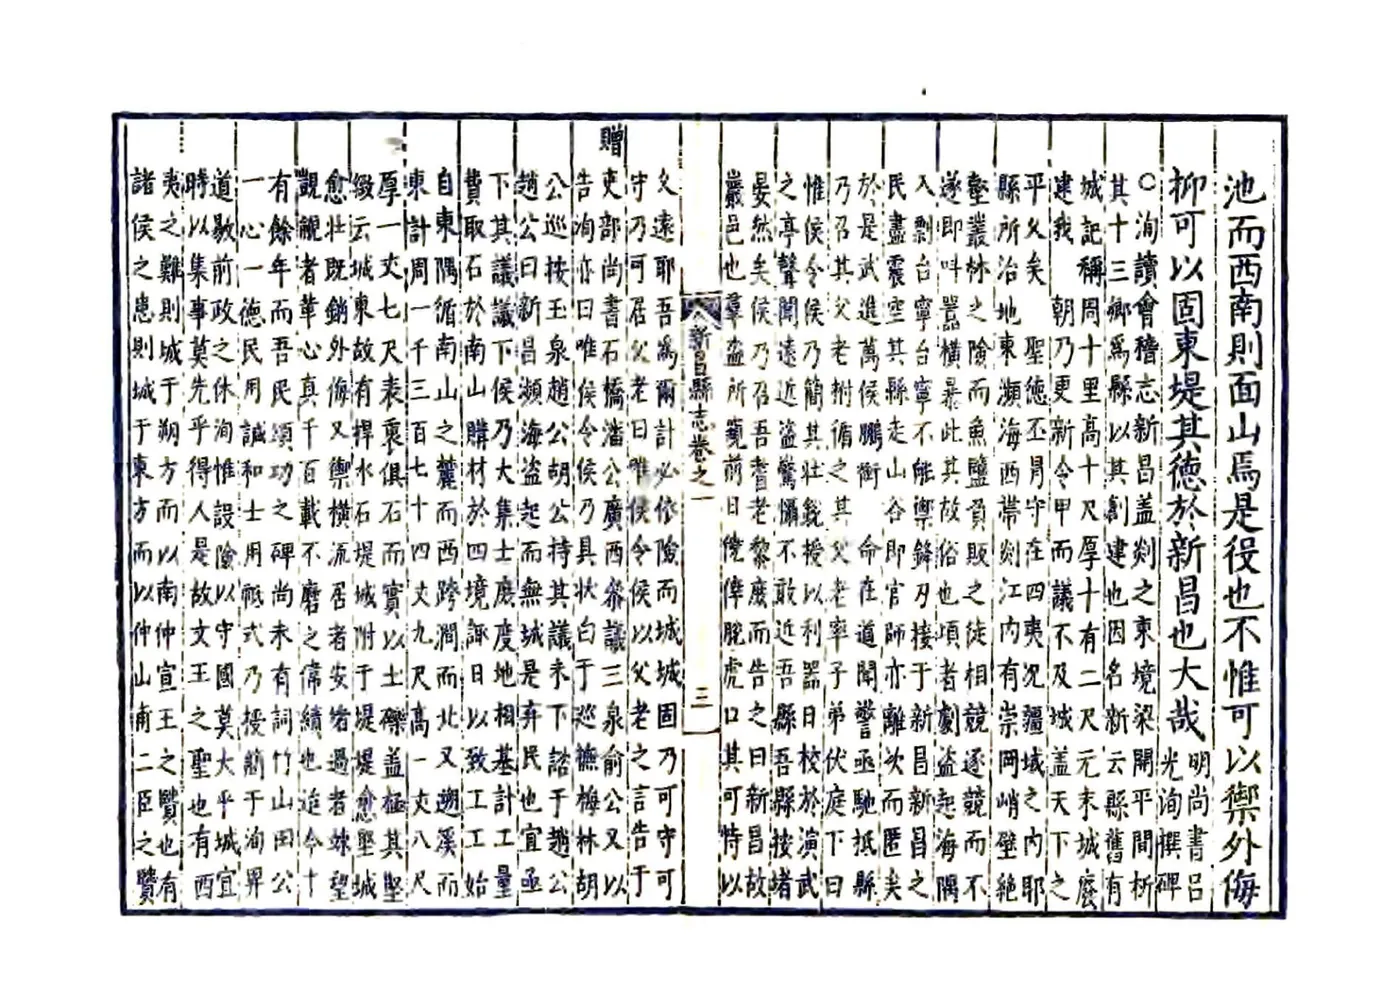 池而西南則面山焉是役也不惟可以禦外侮
抑可以固東堤其德於新昌也大哉
明尚書呂
光洵撰碑
○洵讀會稽志新昌盖剡之東境梁開平間析
其十三鄉爲縣以其創建也因名新云縣舊有
城記稱周十里高十尺厚十有二尺元末城廢
建我　朝乃更新令甲而議不及城盖天下之
平乂矣　聖德丕冐守在四夷况疆域之内耶
縣所治地東瀕海西帯剡江内有崇岡峭壁絶
壑叢林之險而魚鹽負販之徒相競逐競而不
遂即呌嚣横暴此其故俗也頃者劇盗起海隅
入剽台寧台寧不能禦鋒刃接于新昌新昌之
民盡震空其縣走山谷即官師亦離次而匿矣
於是武進萬侯鵬衝　命在道聞警亟馳抵縣
乃召其父老拊循之其父老率子弟伏庭下曰
惟侯令侯乃簡其壯鋭授以利器日校於演武
之亭聲聞遠近盗驚懼不敢近吾縣吾縣按堵
晏然矣侯乃召吾耆老黎庶而告之曰新昌故
巖邑也羣盗所窺前日僥倖脫虎口其可恃以
新昌縣志卷之一
三
久遠耶吾爲爾計必依險而城城固乃可守可
守乃可居父老曰惟侯令侯以父老之言告于
贈吏部尚書石橋潘公廣西參議三泉俞公又以
告洵亦曰唯侯令侯乃具状白于巡撫梅林胡
公巡按王泉趙公胡公持其議未下諮于趙公
趙公曰新昌瀕海盗起而無城是弃民也宜亟
下其議議下侯乃大集士庶度地相基計工量
費取石於南山購材於四境諏日以致工工始
自東隅循南山之麓而西跨澗而北又遡溪而
東計周一千三百七十四丈九尺高一丈八尺
厚一丈七尺表裏俱石而實以土礫盖極其堅
緻云城東故有捍水石堤城附于堤堤愈堅城
愈壮既銷外侮又禦横流居者安堵過者竦望
覬覦者革心真千百載不磨之偉績也迨今十
有餘年而吾民頌功之碑尚未有詞竹山田公
一心一德民用誠和士用祗式乃授簡于洵畀
道敭前政之休洵惟設險以守國莫大乎城宜
時以集事莫先乎得人是故文王之聖也有西
夷之難則城于朔方而以南仲宣王之賢也有
諸侯之患則城于東方而以仲山甫二臣之賢